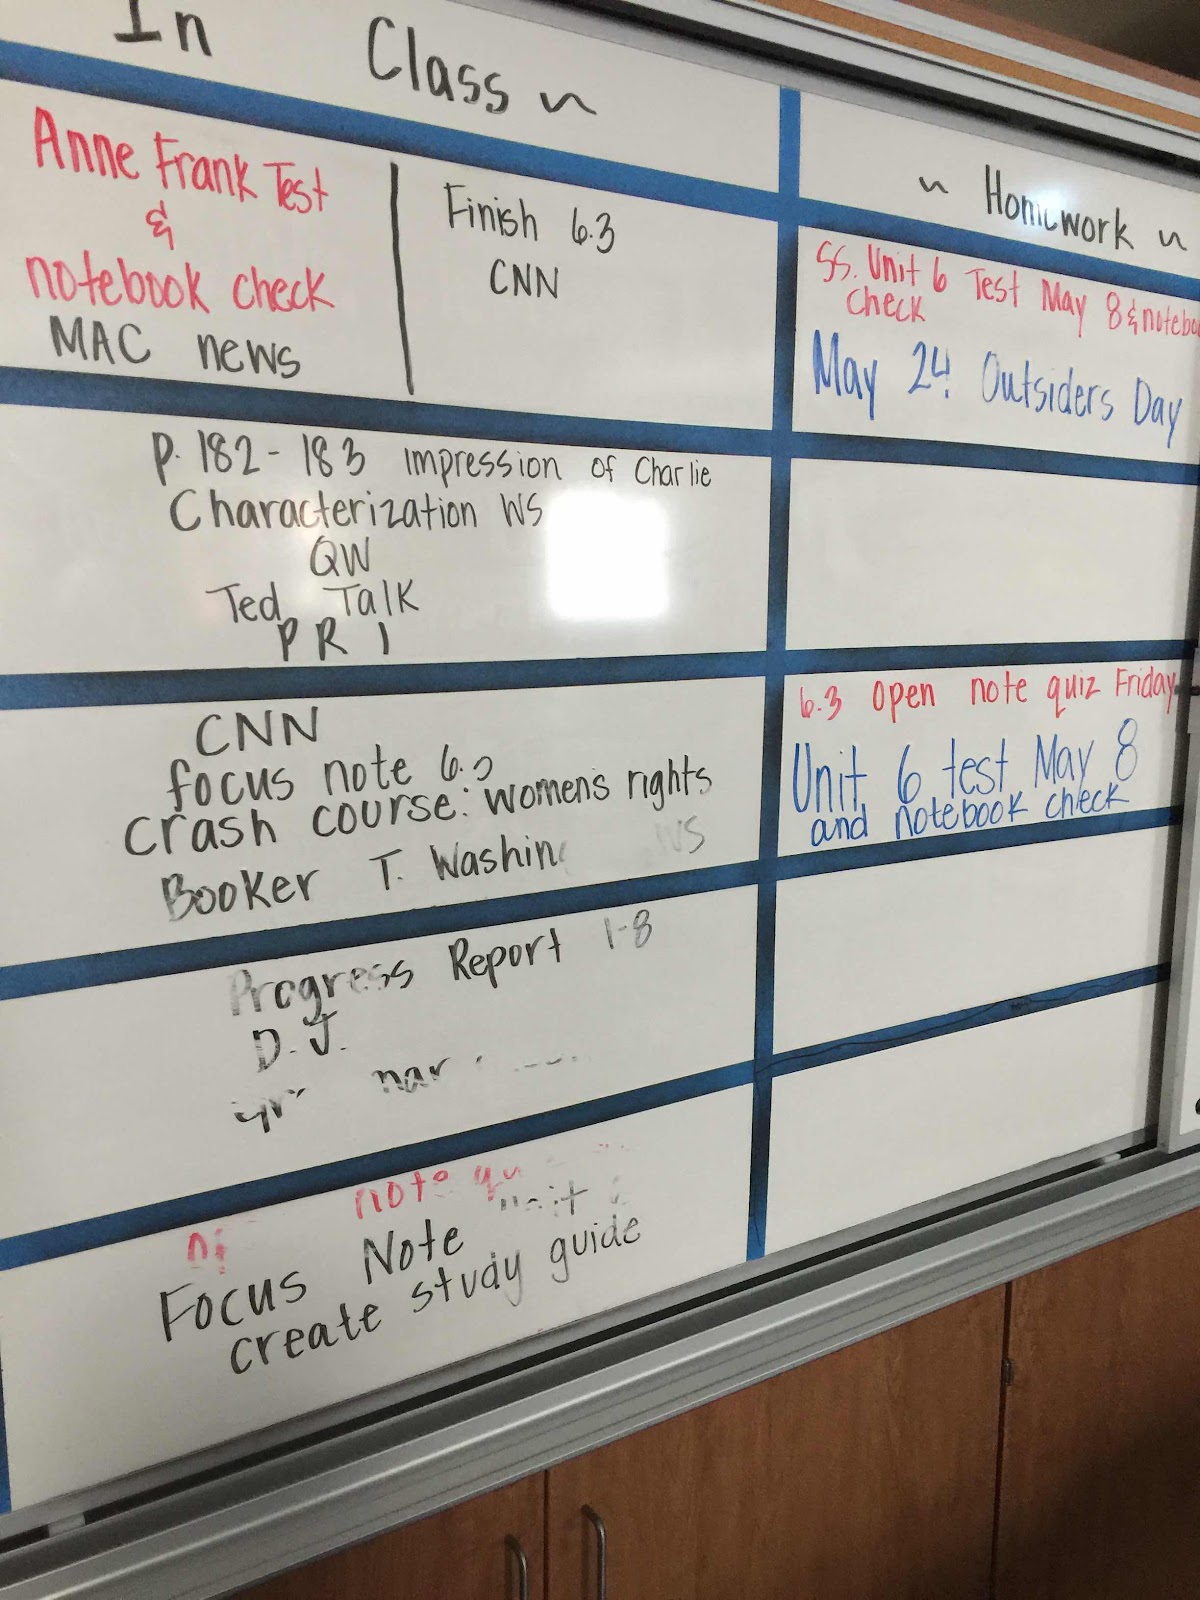 In Class ~
~ Homework ~
Anne Frank Test
&
notebook check
MAC news
Finish 6.3
CNN
SS. Unit 6 Test May 8 &
check
May 24: Outsiders Day
p. 182-183 impression of Charlie
Characterization WS
QW
Ted Talk
P R 1
CNN
focus note
crash course: women's rights
Booker T. WS
6.3 Open note quiz Friday
Unit 6 test May 8
and notebook check
Progress Report 1-8
D.J.
note
Focus Note
create study guide